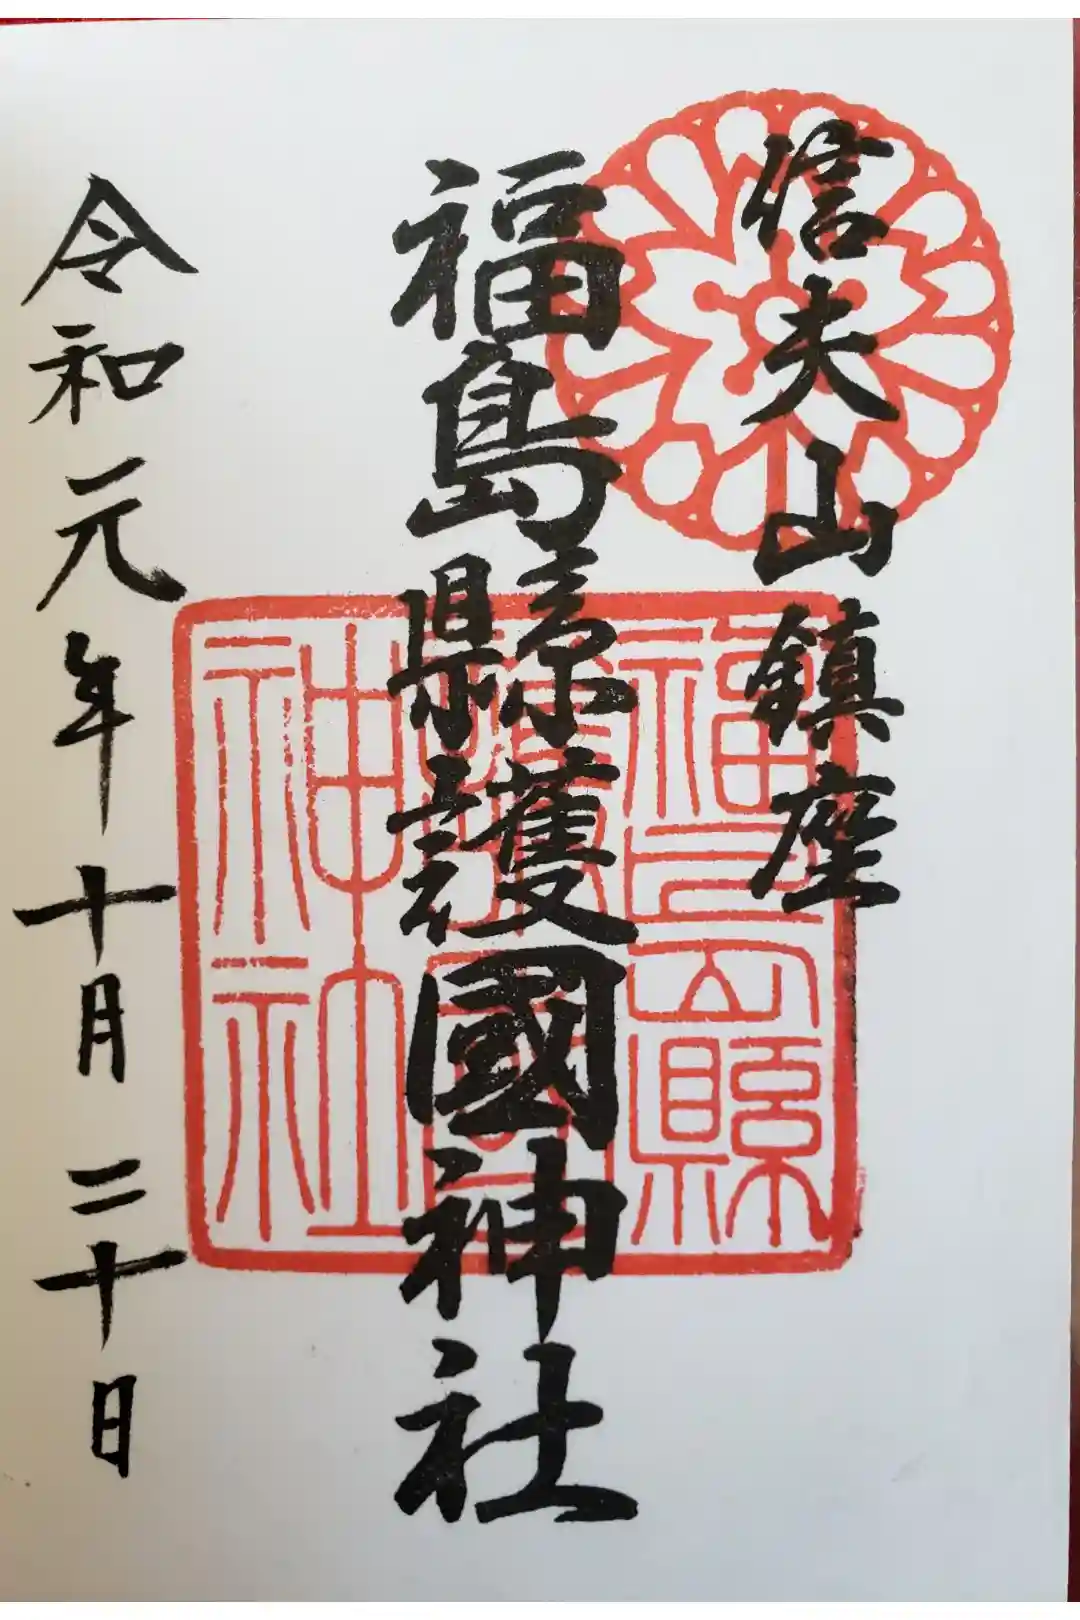 信夫山鎮座
福島縣護國神社
令和元年十月二十日
福島縣
護國
神社